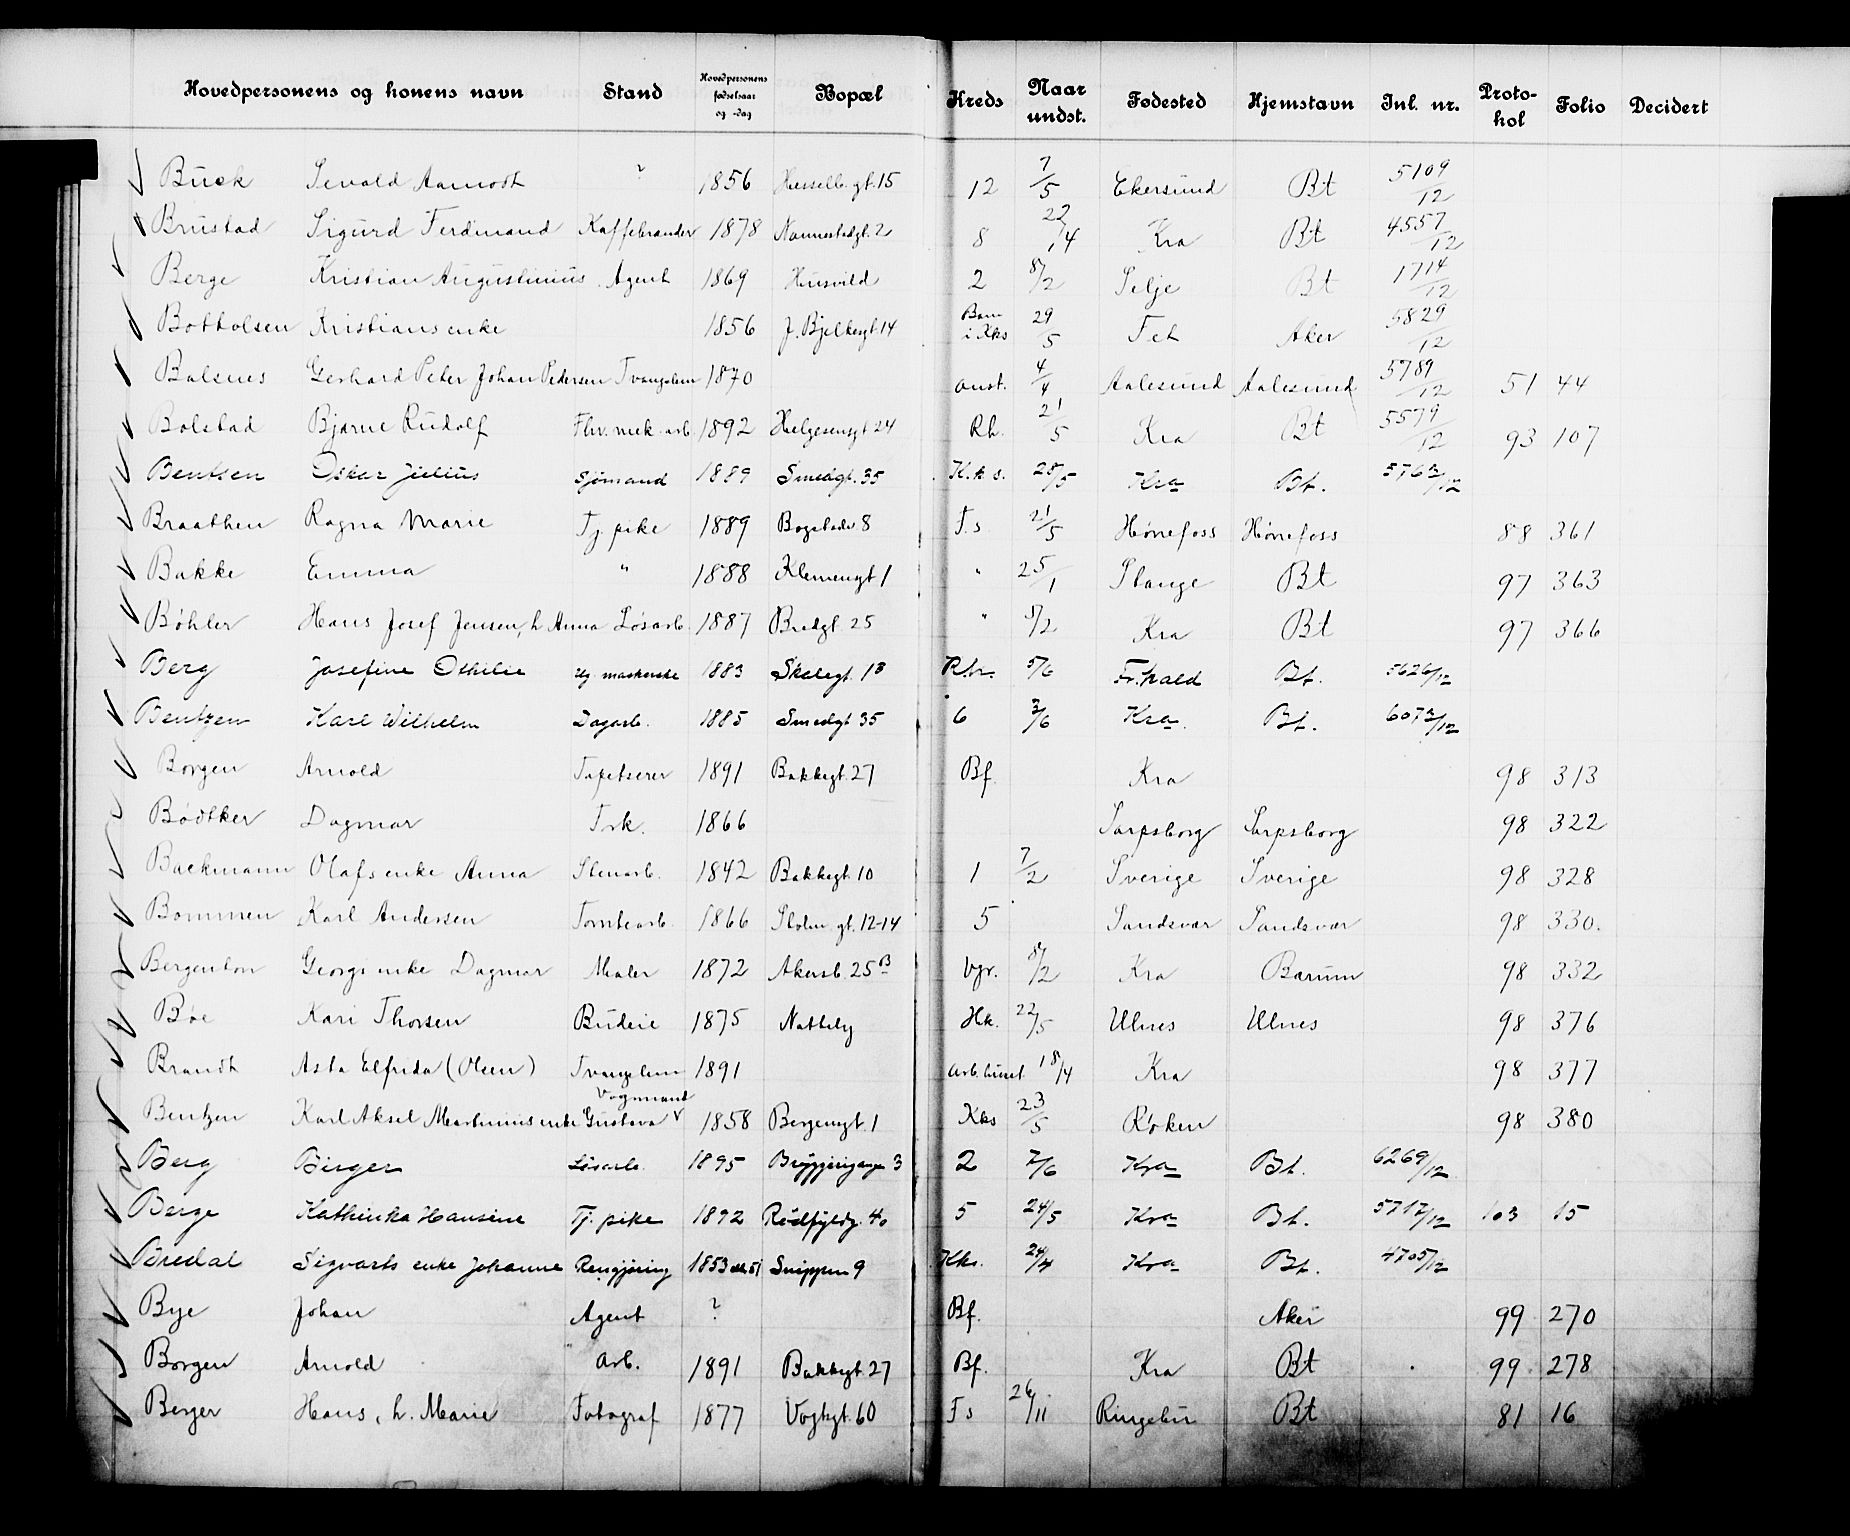 Hovedpersonens og konens navn Stand Hovedpersonens fødselsaar og -dag Bopæl Kreds Naar undst. Fødested Hjemstavn Inl. nr. Protokol Folio Decidert
Buck Sevald Aamodt ? 1856 Hesselb. gt. 15 12 7/5 Ekersund Bt 5109/12
Brustad Sigurd Ferdinand Kaffebrænder 1878 Nannestadgt. 2 8 22/4 Kra Bt 4557/12
Berge Kristian Augustinius Agent 1869 Husvild 2 8/2 Selje Bt 1714/12
Botholsen Kristians enke 1856 J. Bjelkesgt 14 Barn i Kks 29/5 Fet Aker 5829/12
Balsnes Gerhard Peter Johan Pedersen Tvangslem 1870 anst. 4/4 Aalesund Aalesund 5789/12 51 44
Bolstad Bjarne Rudolf Fhv. mek. arb 1892 Helgesensgt 24 Rh. 21/5 Kra Bt 5579/12 93 107
Bentsen Oskar Julius Sjømand 1889 Smedgt. 35 K.k s. 28/5 Kra Bt. 5763/12
Braathen Ragna Marie Tj. pike 1889 Bogstadv 8 F.s. 21/5 Hønefoss Hønefoss 88 361
Bakke Emma " 1888 Klemensgt 1 " 25/1 Stange Bt 97 363
Bøhler Hans Josef Jensen, h Anna Løsarb. 1887 Bredgt. 25 " 8/2 Kra Bt 97 366
Berg Josefine Othilie 1883 Skolegt. 18 5/6 Fr.hald Bt. 5626/12
Bentzen Karl Wilhelm Dagarb. 1885 Smedgt 35 6 3/6 Kra. Bt. 6073/12
Borgen Arnold Tapetserer 1891 Bakkegt. 27 Bf. Kra 98 313
Bødtker Dagmar Frk. 1866 Sarpsborg Sarpsborg 98 322
Backmann Olafs enke Anna Stenarb. 1842 Bakkegt. 10 1 7/2 Sverige Sverige 98 328
Bommen Karl Andersen Tomtearb. 1866 Stolm. gt. 12-14 5 Sandsvær Sandsvær 98 330.
Bergenton Georgs enke Dagmar Maler 1872 Akersb. 25 B Vgr. 8/2 Kra Bærum 98 332
Bøe Kari Thorsen Budeie 1875 Natteby Hk. 22/5 Ulnes Ulnes 98 376
Brandt Asta Elfrida (Olsen) Tvangslem 1891 Arb.huset 18/4 Kra 98 377
Vognmand
Bentzen Karl Aksel Martinius enke Gustava v 1858 Bergensgt. 1 Kks 23/5 Røken 98 380
Berg Birger Løsarb. 1895 Bryggerigangen 3 2 7/6 Kra Bt. 6269/12
Berge Kathinka Hansine Tj. pike 1892 Rødfyldg. 40 5 24/5 Kra Bt. 5717/12 103 15
Bredal Sigvarts enke Johanne Rengjøring 1853 Snippen 9 Kks. 24/4 Kra Bt. 4705/12
Bye Johan Agent ? Bf. Aker 99 270
Borgen Arnold Arb. 1891 Bakkegt. 27 Bf. Kra Bt 99 278
Berger Hans, h. Marie Fotograf 1877 Vogtsgt. 60 Fs 26/11 Ringebu Bt 81 16